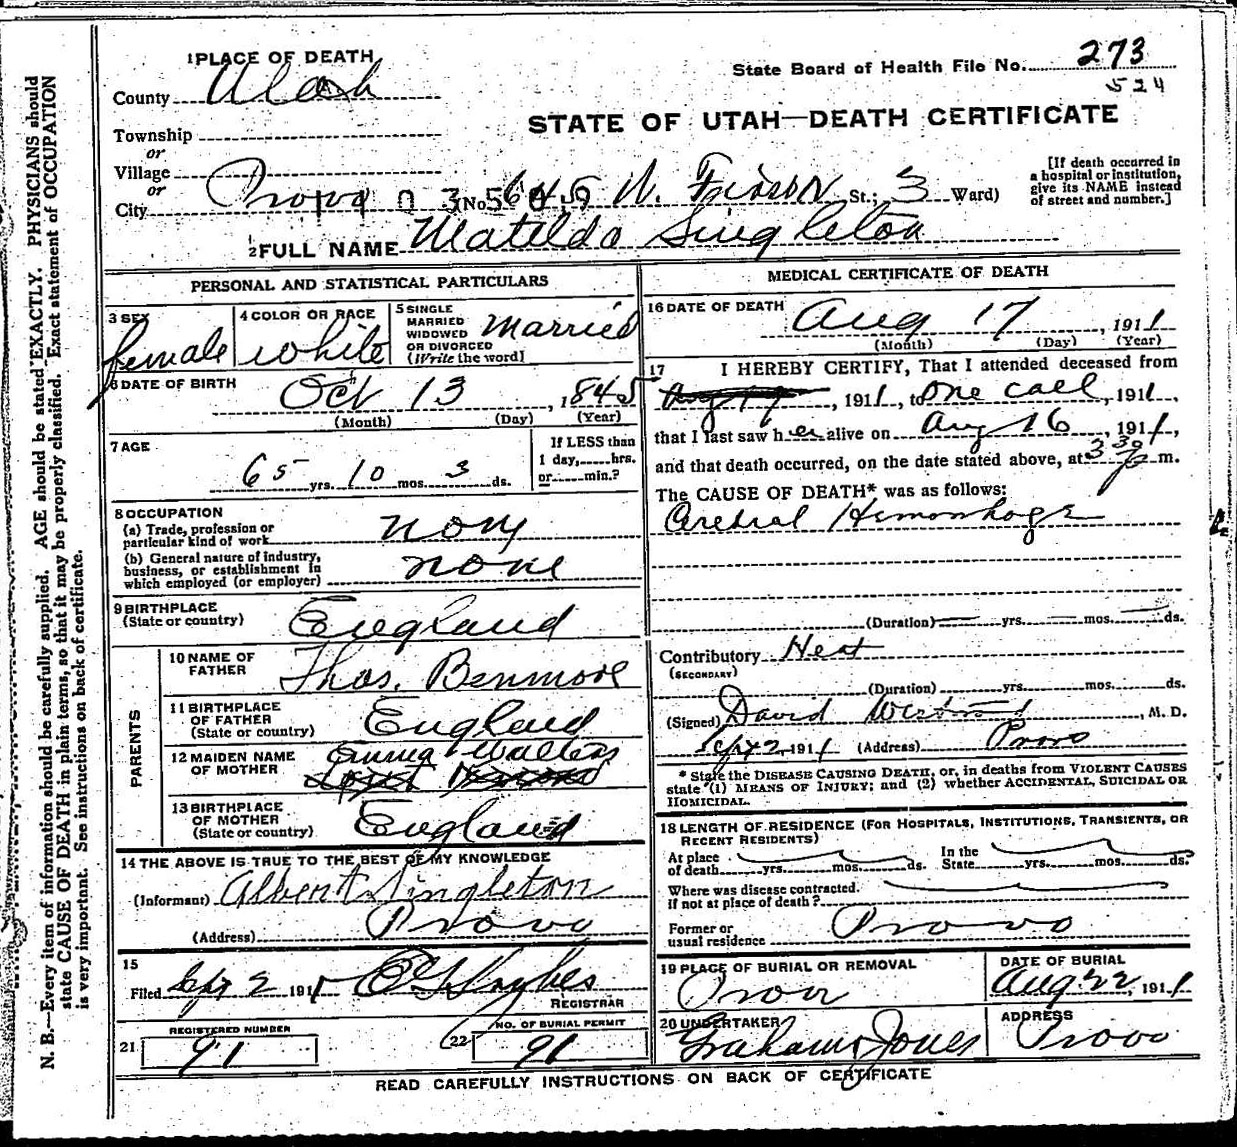 1 PLACE OF DEATH
County Utah
State Board of Health File No. 273
524
Township
or
Village
or
City Provo
STATE OF UTAH—DEATH CERTIFICATE
(No. W. St.; 3 Ward)
[If death occurred in
a hospital or institution,
give its NAME instead
of street and number.]
2 FULL NAME Matilda Singleton
PERSONAL AND STATISTICAL PARTICULARS
3 SEX female
4 COLOR OR RACE white
5 SINGLE
MARRIED
WIDOWED
OR DIVORCED
(Write the word)
Married
6 DATE OF BIRTH
Oct 13, 1845
(Month) (Day) (Year)
7 AGE
65 yrs. 10 mos. 3 ds.
If LESS than
1 day,......hrs.
or......min.?
8 OCCUPATION
(a) Trade, profession or
particular kind of work
(b) General nature of industry,
business, or establishment in
which employed (or employer) none
9 BIRTHPLACE
(State or country) England
PARENTS
10 NAME OF
FATHER Thos. Benmore
11 BIRTHPLACE
OF FATHER
(State or country) England
12 MAIDEN NAME
OF MOTHER Emma Walters
13 BIRTHPLACE
OF MOTHER
(State or country) England
14 THE ABOVE IS TRUE TO THE BEST OF MY KNOWLEDGE
(Informant) Albert Singleton
(Address) Provo
15
Filed Sept 2 1911
REGISTRAR
21 REGISTERED NUMBER
91
22 NO. OF BURIAL PERMIT
91
MEDICAL CERTIFICATE OF DEATH
16 DATE OF DEATH Aug 17, 1911
(Month) (Day) (Year)
17 I HEREBY CERTIFY, That I attended deceased from
, 1911, to one call, 1911,
that I last saw her alive on Aug 16, 1911,
and that death occurred, on the date stated above, at 3 30 P m.
The CAUSE OF DEATH* was as follows:
Cerebral Hemorrhage
(Duration) yrs. mos. ds.
Contributory Heat
(SECONDARY)
(Duration) yrs. mos. ds.
(Signed) David Westwood, M. D.
Sept 2 1911 (Address) Provo
* State the DISEASE CAUSING DEATH, or, in deaths from VIOLENT CAUSES
state (1) MEANS OF INJURY; and (2) whether ACCIDENTAL, SUICIDAL OR
HOMICIDAL.
18 LENGTH OF RESIDENCE (FOR HOSPITALS, INSTITUTIONS, TRANSIENTS, OR
RECENT RESIDENTS)
At place
of death......yrs......mos......ds.
In the
State......yrs......mos......ds.
Where was disease contracted.
if not at place of death?
Former or
usual residence Provo
19 PLACE OF BURIAL OR REMOVAL
Provo
DATE OF BURIAL
Aug 22, 1911
20 UNDERTAKER
Graham & Jones
ADDRESS
Provo
READ CAREFULLY INSTRUCTIONS ON BACK OF CERTIFICATE
N. B.—Every item of information should be carefully supplied. AGE should be stated EXACTLY. PHYSICIANS should
state CAUSE OF DEATH in plain terms, so that it may be properly classified. Exact statement of OCCUPATION
is very important. See instructions on back of certificate.